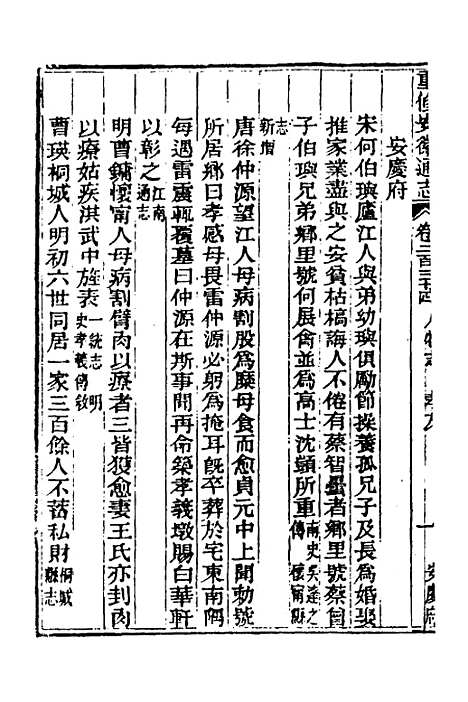 重修安徽通志 卷二百三十四 人物志 孝友 一 安慶府
安慶府
宋何伯璵廬江人與弟幼璵俱勵節操養孤兄子及長爲婚娶
推家業盡與之安貧枯槁誨人不倦有蔡智疊者鄉里號蔡曾
子伯璵兄弟鄉里號何展禽並爲高士沈顗所重南史吳逵之傳 懷甯縣
志新增
唐徐仲源望江人母病割股爲糜母食而愈貞元中上聞勅號
所居鄉曰孝感母畏雷仲源必躬爲掩耳旣卒葬於宅東南隅
每遇雷震輒覆墓曰仲源在斯事聞再命築孝義墩賜白華軒
以彰之江南通志
明曹鏞懷甯人母病割臂肉以療者三皆獲愈妻王氏亦刲肉
以療姑疾洪武中旌表一統志 明史孝義傳敘
曹瑛桐城人明初六世同居一家三百餘人不蓄私財桐城縣志